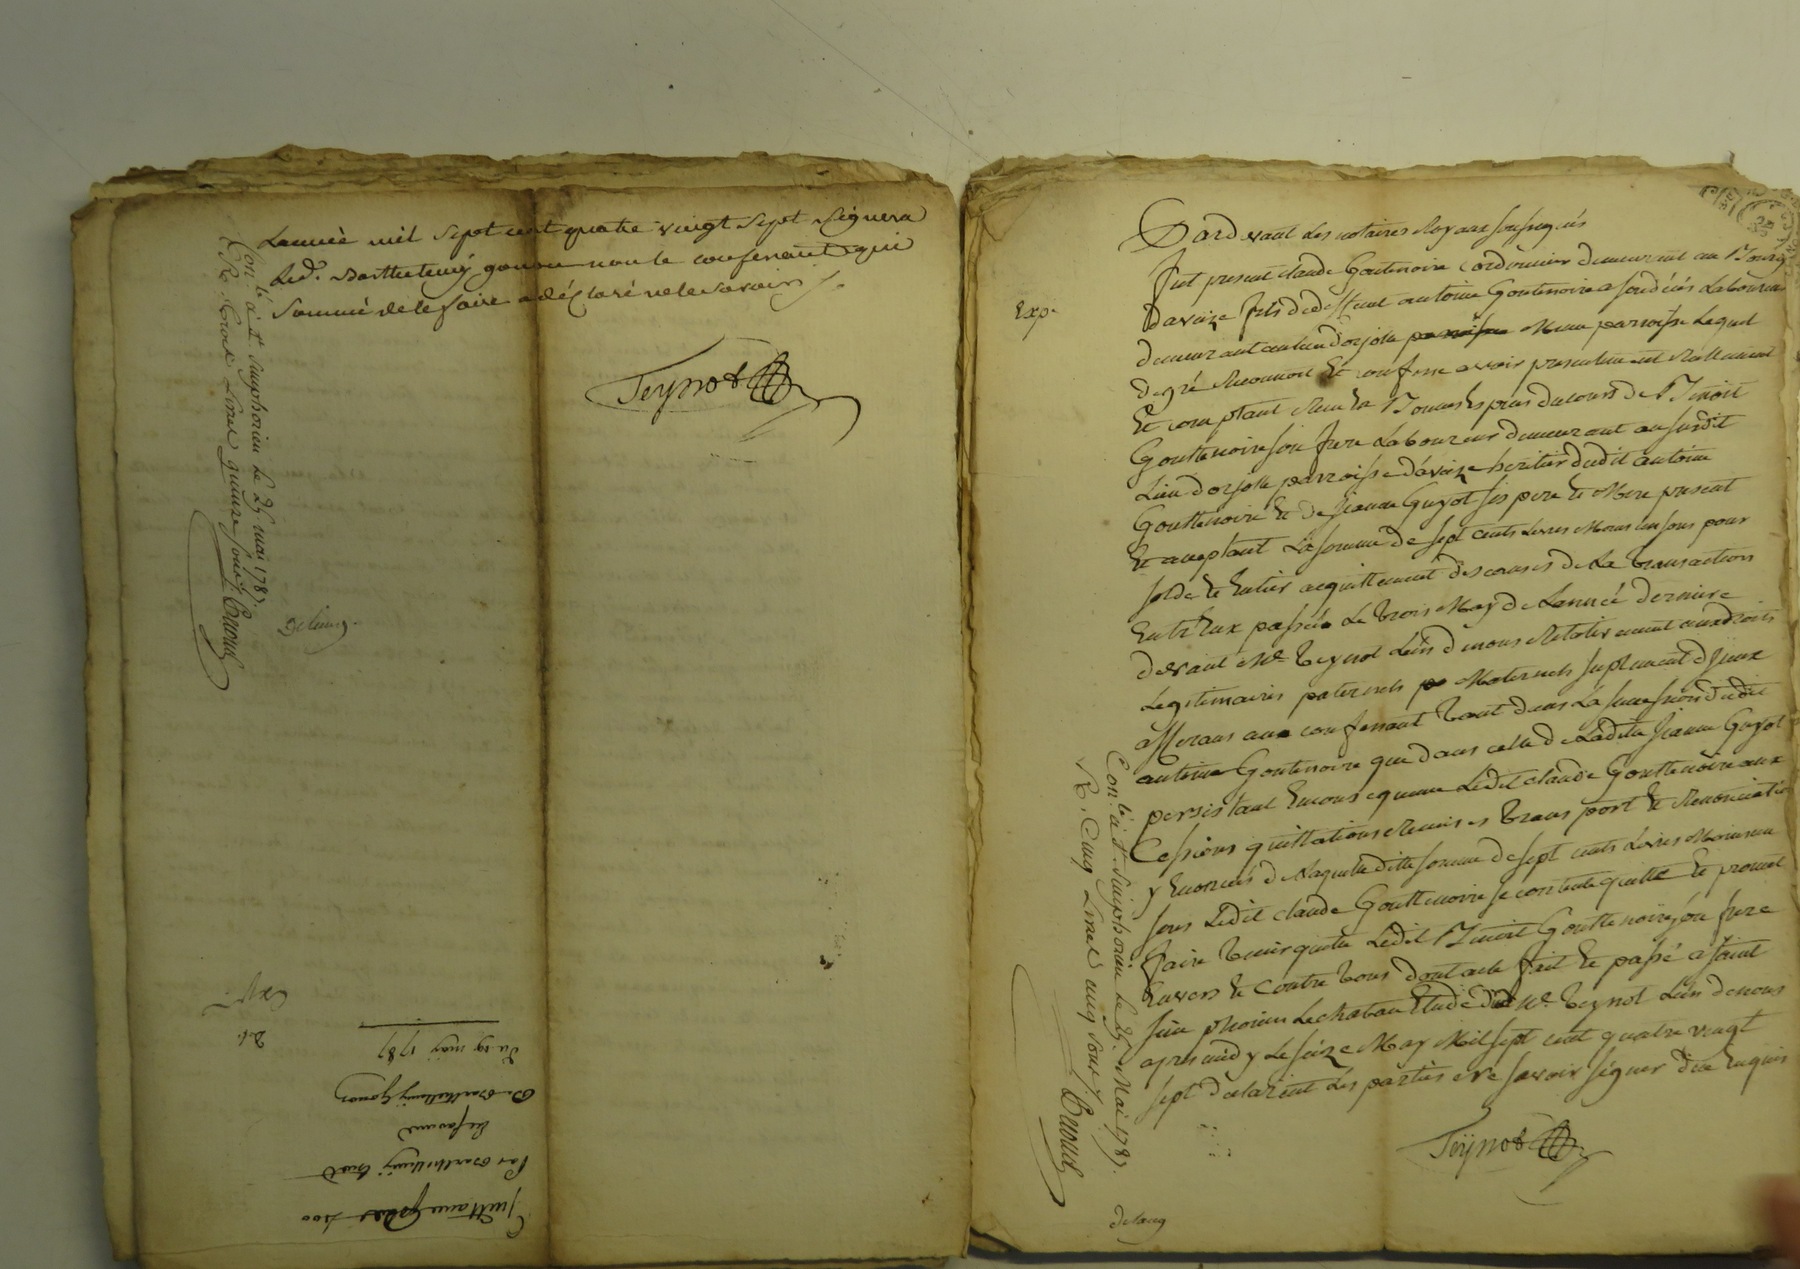 L'année mil sept cent quatre vingt sept signera
led. Barthelemy gonon non le confessant qui
Sommé de le faire a déclaré ne le savoir
Teynot
Con.lé à St. Simphorien le 25 mai 1787.
R. livres quinze sous
Du 19 may 1787
De Barthellemy gonon
Par Barthellemy
Quittance
Exp.
Pardevant Les notaires Royaux soussignés
fut present claude Goutenoire Cordonnier demeurant au Bourg
Davaize fils de deffunt antoine Goutenoire a son décés Laboureur
demeurant au lieu Dorjolle paroisse Meme parroisse Lequel
de gré Reconnoit Et confesse avoir presentement Réellement
Et comptant Receu En Bonnes Especes du cours de Benoit
Gouttenoire son frere Laboureur demeurant au susdit
Lieu dorjolle parroisse d'avaize heritier dudit antoine
Gouttenoire Et de Jeanne Guyot ses pere Et Mere present
Et acceptant La somme de sept cents Livres Moins un sous pour
solde Et Entier acquittement des causes de La transaction
Entr'Eux passée Le trois May de Lannée derniere
devant Me. teynot L'un de nous Relativement aux droits
Legitimaires paternels Maternels suplement d'yceux
afferans au confessant tant dans La succession dudit
antoine Goutenoire que dans celle de Laditte Jeanne Guyot
persistant Ledit claude Gouttenoire aux
Cessions quittations Remises transport Et Renonciation
y Enoncés de Laquelle ditte somme de sept cents Livres Moins un
sous Ledit claude Gouttenoire se contente quitte Et promet
faire tenir quitte Ledit Benoit Gouttenoire son frere
Envers Et Contre tous dont acte fait Et passé a saint
sim phorien Lechateau Etude dud Me. teynot L'un de nous
apres midy Le seize May Mil sept cent quatre vingt
sept declarent Les parties Ne savoir signer de ce Enquis
Teynot
Con.lé à St. Simphorien le 25 Mai 1787.
R. Cinq Livres cinq sous